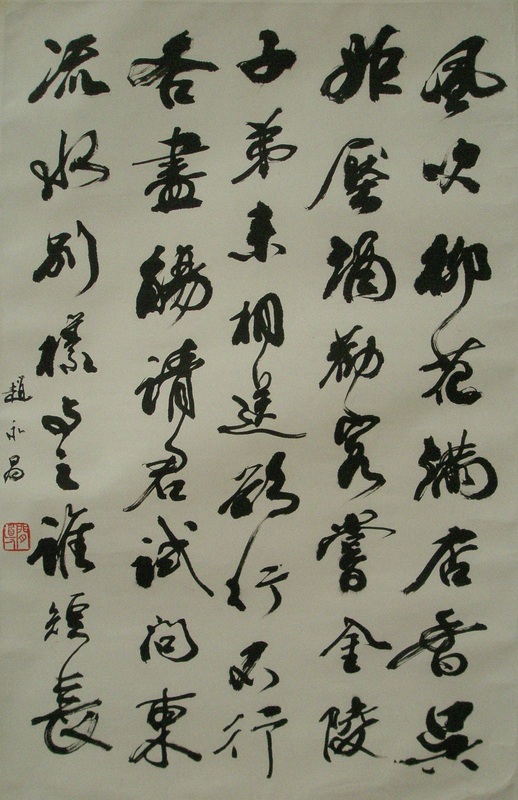 風吹柳花滿店香吳
姬壓酒勸客嘗金陵
子弟来相送欲行不行
各盡觴請君試問東
流水別樣与之誰短長
趙永昌